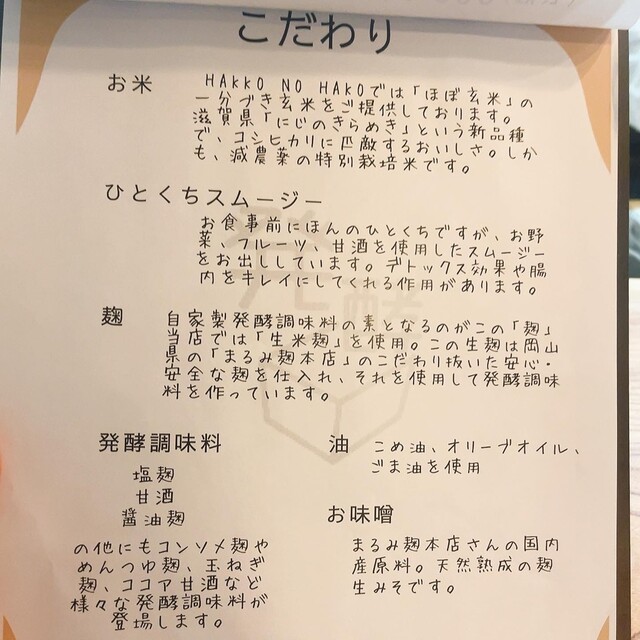 こだわり
お米
HAKKO NO HAKOでは「ほぼ玄米」の
一分づき玄米をご提供しております。
滋賀県「にじのきらめき」という新品種
で、コシヒカリに匹敵するおいしさ。しか
も、減農薬の特別栽培米です。
ひとくちスムージー
お食事前にほんのひとくちですが、お野
菜、フルーツ、甘酒を使用したスムージー
をお出ししています。デトックス効果や腸
内をキレイにしてくれる作用があります。
麹
自家製発酵調味料の素となるのがこの「麹」
当店では「生米麹」を使用。この生麹は岡山
県の「まるみ麹本店」のこだわり抜いた安心・
安全な麹を仕入れ、それを使用して発酵調味
料を作っています。
発酵調味料
塩麹
甘酒
醤油麹
の他にもコンソメ麹や
めんつゆ麹、玉ねぎ
麹、ココア甘酒など
様々な発酵調味料が
登場します。
油
こめ油、オリーブオイル、
ごま油を使用
お味噌
まるみ麹本店さんの国内
産原料。天然熟成の麹
生みそです。
発酵